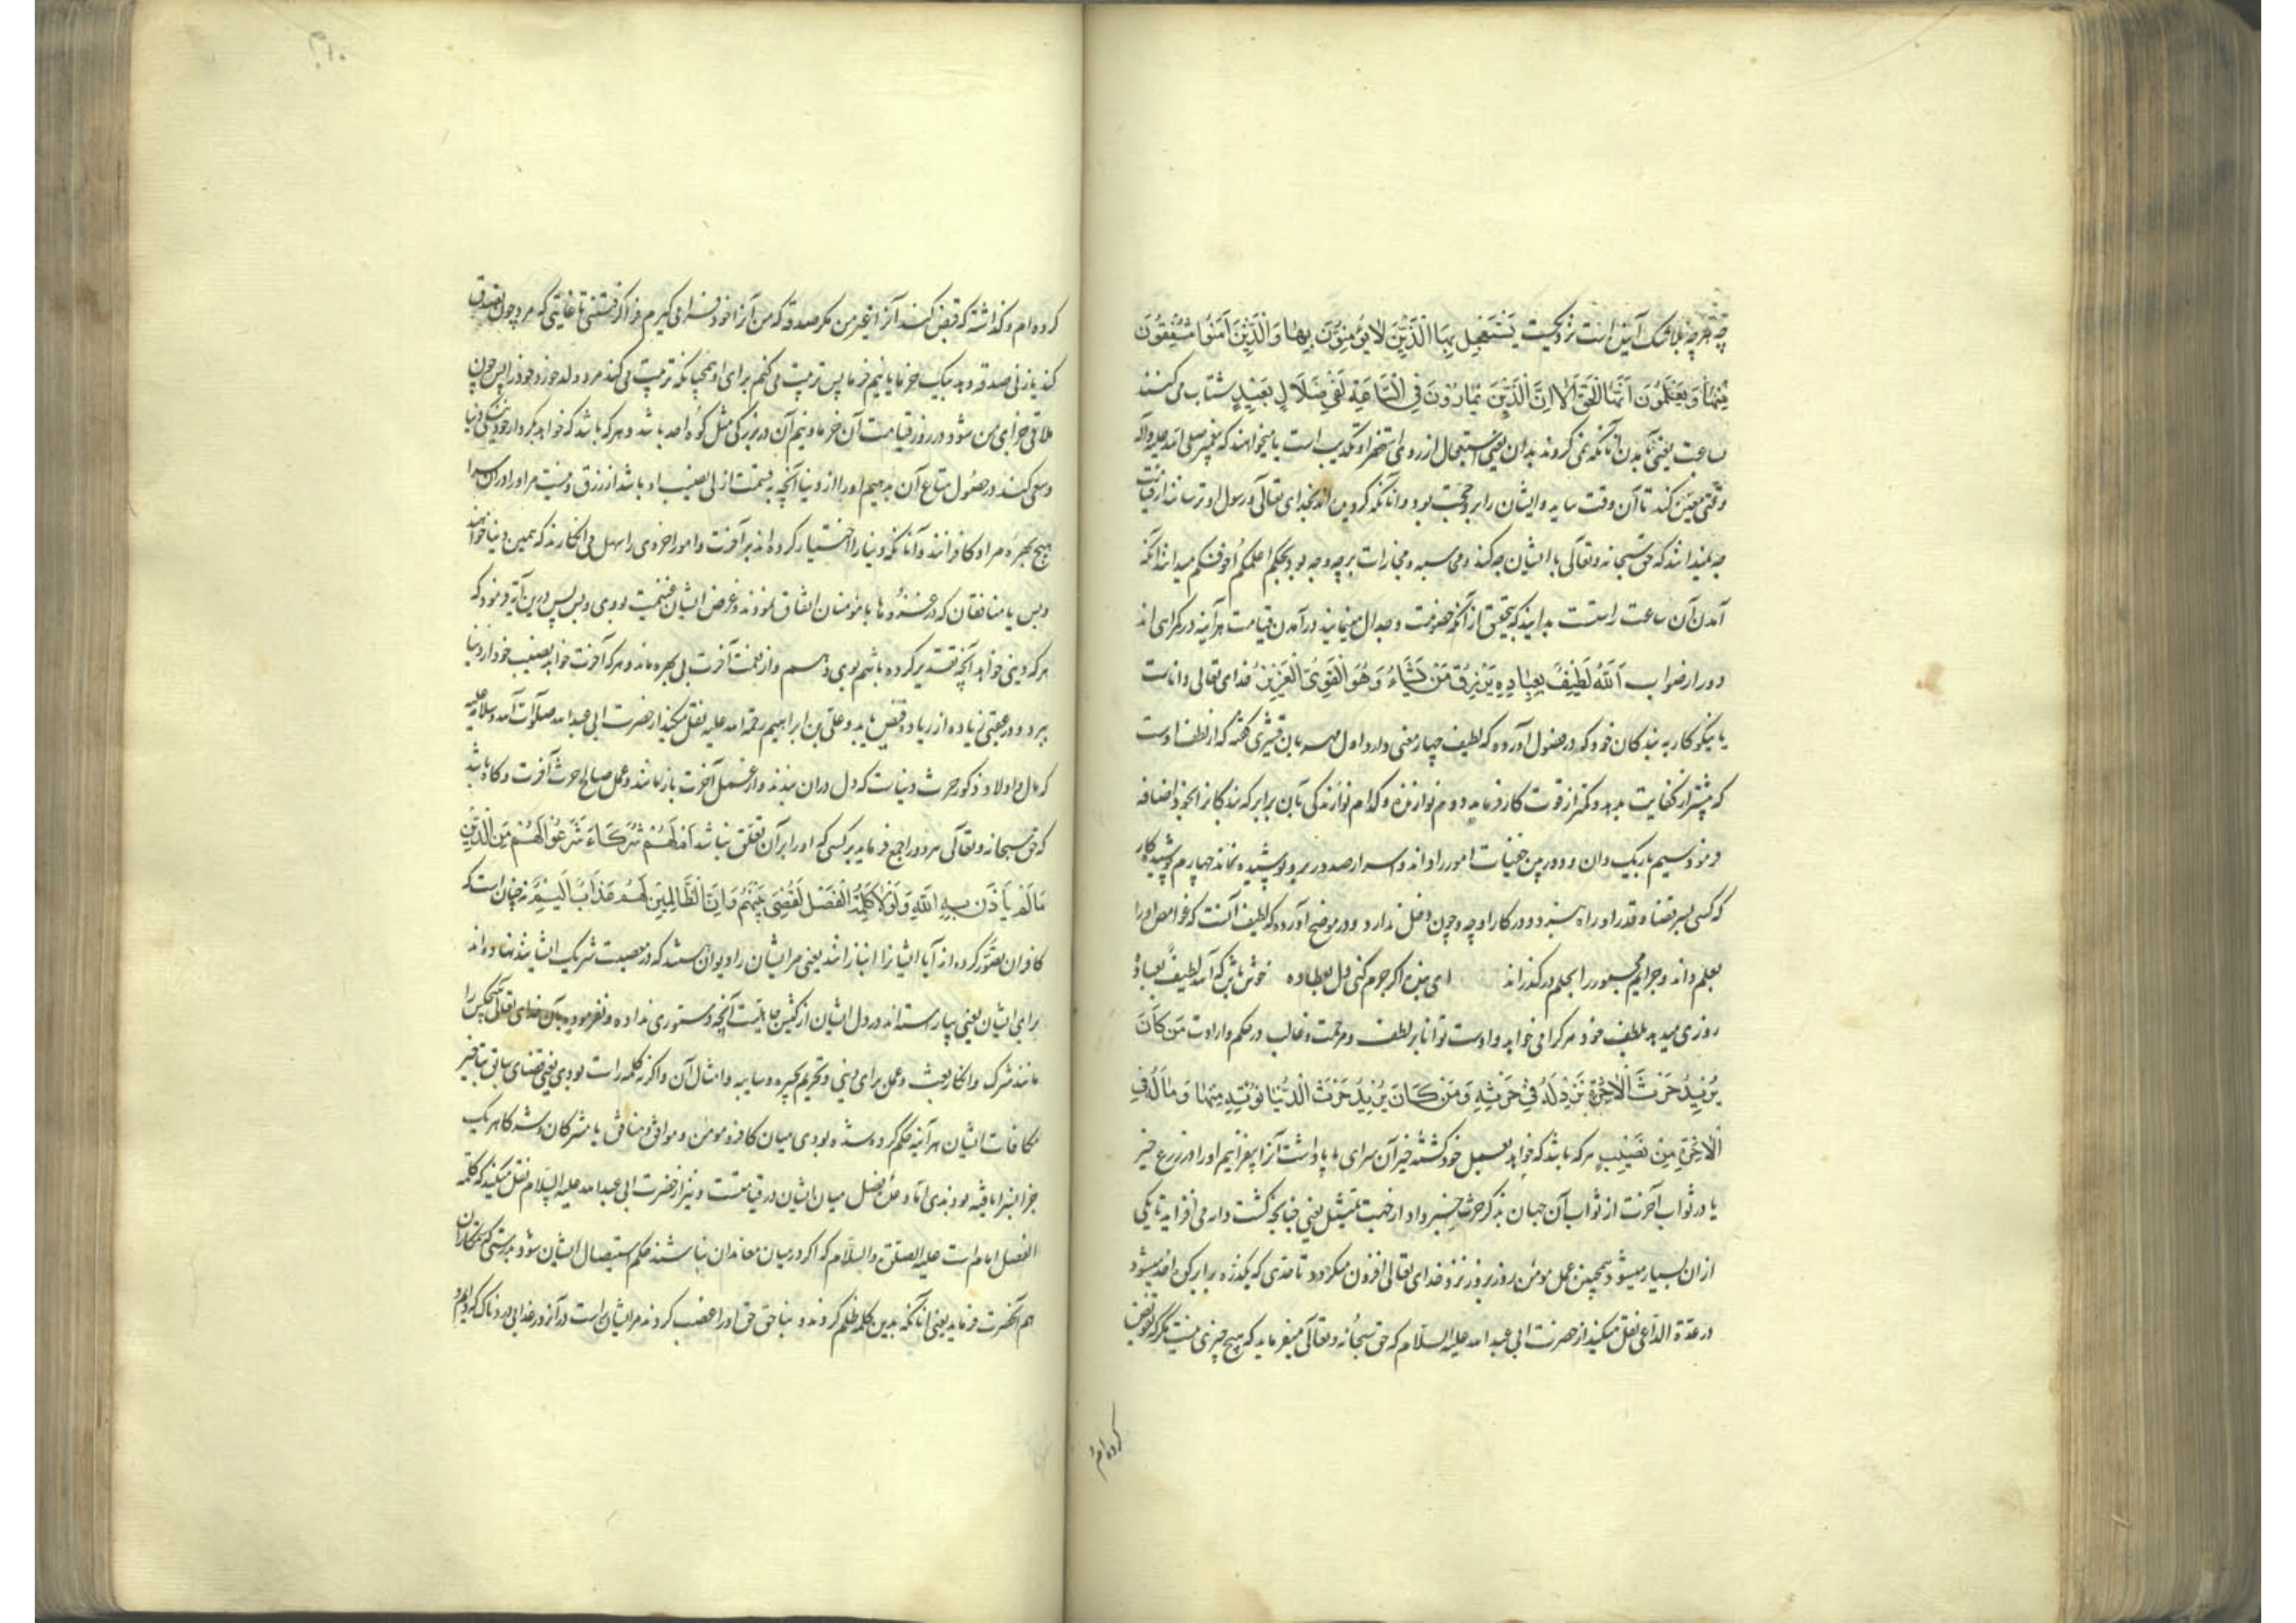 چه هرچه بلاشک آینده است نزدیکست یَسْتَعْجِلُ بِهَا الَّذِینَ لَا یُؤْمِنُونَ بِهَا وَالَّذِینَ آمَنُوا مُشْفِقُونَ
مِنْهَا وَیَعْلَمُونَ أَنَّهَا الْحَقُّ أَلَا إِنَّ الَّذِینَ یُمَارُونَ فِی السَّاعَةِ لَفِی ضَلَالٍ بَعِیدٍ شتاب می کنند
بساعت یعنی بآمدن آنانکه نمی گروند بدان یعنی استعجال از روی استهزا و تکذیب است یا میخواهند که پیغمبر صلی الله علیه وآله
وقتی معین کند تا آن وقت بیاید و ایشان را بر وی حجت بود و آنانکه گرویده اند بخدای تعالی و رسول او ترسانند از قیامت
چه نمیدانند که حق سبحانه و تعالی با ایشان چه کند و محاسبه و مجازات بر چه وجه بود بحکم اعلمکم اخوفکم میدانند آنکه
آمدن آن ساعت راستست بدانید که بتحقیق از آنکه خصومت و جدال مینمایند در آمدن قیامت هرآینه در گمراهی اند
دور از صواب اَللَّهُ لَطِیفٌ بِعِبَادِهِ یَرْزُقُ مَنْ یَشَاءُ وَهُوَ الْقَوِیُّ الْعَزِیزُ خدای تعالی داناست
یا نیکوکار به بندگان خود و در فصول آورده که لطیف چهار معنی دارد اول مهربان قشیری گفته که از لطف اوست
که بیشتر از کفایت بدهد و کمتر از قوت کار فرماید دوم نوازنده و کدام نوازندگی بآن برابر که بندگانرا بخود اضافه
فرمود سیم باریک دان و دوربین خفیات امور را داند و اسرار صدور برو پوشیده نماند چهارم پوشیده کار
که کسی بسر قضا و قدر او راه نبرد و در کار او چه و چون دخل ندارد و در موضح آورده که لطیف آنست که غوامض امور را
بعلم داند و جرایم جمهور را بحلم درگذراند ای بنده اگر جرم کنی دل بعطا ده خوش باش که آمد لطیفٌ بعباده
روزی میدهد بلطف خود هرکرا می خواهد و اوست توانا بر لطف و مرحمت و غالب در حکم و ارادت مَنْ کَانَ
یُرِیدُ حَرْثَ الْآخِرَةِ نَزِدْ لَهُ فِی حَرْثِهِ وَمَنْ کَانَ یُرِیدُ حَرْثَ الدُّنْیَا نُؤْتِهِ مِنْهَا وَمَا لَهُ فِی
الْآخِرَةِ مِنْ نَصِیبٍ هرکه باشد که خواهد بعمل خود کشته خیر آن سرای یا پاداشت آنرا بیفزائیم او را در زرع خیر
یا در ثواب آخرت از ثواب آن جهان بذکر حرث خبر داد از جهت تمثیل یعنی چنانچه کشت دانه می افزاید تا یکی
ازان بسیار میشود همچنین عمل مومن روز بروز نزد خدای تعالی افزون میگردد تا حدی که یکذره برابر کوه احد میشود
در عدة الداعی نقل میکند از حضرت ابی عبد الله علیه السلام که حق سبحانه و تعالی میفرماید که هیچ چیزی نیست مگر که تفویض
کرده ام
کرده ام و گذاشته که قبض کند آنرا غیر من مگر صدقه که من آنرا خود فرا می گیرم فرا گرفتنی تا غایتی که مرد چون تصدق
کند یا زنی صدقه دهد بیک خرما یا نیم خرما پس تربیت می کنم برای او همچنانکه تربیت می کند مرد ولد خود را پس چون
ملاقی جزای من شود در روز قیامت آن خرما و نیم آن در بزرگی مثل کوه احد باشد و هرکه باشد که خواهد بکردار خود کشت دنیا
و سعی کند در حصول متاع آن بدهیم او را از دنیا آنچه بقسمت ازلی نصیب او باشد از رزق و نیست مر او را در آن سرا
هیچ بهره مراد کافرانند و آنانکه دنیا را اختیار کرده اند بر آخرت و امور اخروی را سهل می انگارند که همین دنیا خواهند
و بس یا منافقان که در غزوها با مؤمنان اتفاق نمودند و غرض ایشان غنیمت بودی و بس پس درین آیه فرمود که
هرکه دینی خواهد آنچه تقدیر کرده باشم بوی دهم و از نعمت آخرت بی بهره ماند و هرکه آخرت خواهد نصیب خود از دنیا
ببرد و در عقبی زیاده از زیاده فیض یابد و علی بن ابراهیم رحمة الله علیه نقل میکند از حضرت ابی عبد الله صلوات الله وسلامه علیه
که مال و اولاد ذکور حرث دنیاست که دل دران بندند و از عمل آخرت باز مانند و عمل صالح حرث آخرت و گاه باشد
که حق سبحانه و تعالی هر دو را جمع فرماید بر کسی که او را بر آن تعلق نباشد أَمْ لَهُمْ شُرَکَاءُ شَرَعُوا لَهُمْ مِنَ الدِّینِ
مَا لَمْ یَأْذَنْ بِهِ اللَّهُ وَلَوْلَا کَلِمَةُ الْفَصْلِ لَقُضِیَ بَیْنَهُمْ وَإِنَّ الظَّالِمِینَ لَهُمْ عَذَابٌ أَلِیمٌ نه چنان است که
کافران تصور کرده اند آیا ایشانرا انبازانند یعنی مر ایشان را دیوان هستند که در معصیت شریک ایشانند نهاده اند
برای ایشان یعنی بیاراسته اند در دل ایشان از کیش جاهلیت آنچه دستوری نداده و نفرموده بآن خدای تعالی هیچکس را
مانند شرک و انکار بعث و عمل برای دنیی و تحریم بحیره و سایبه و امثال آن و اگر نه کلمه راست بودی یعنی قضای سابق بتأخیر
مکافات ایشان هرآینه حکم کرده شده بودی میان کافر و مومن و موافق و منافق یا مشرکان و شرکا هریک
جزا بسزا یافته بودندی اما وعده فصل میان ایشان در قیامتست و نیز از حضرت ابی عبد الله علیه السلام نقل میکند که کلمة
الفصل امام است علیه الصلوة والسلام که اگر در میان معاندان نباشند حکم استیصال ایشان شود بدرستی که ستمکاران
هم آنحضرت فرماید یعنی آنانکه بدین کلمه ظلم کردند و بناحق حق او را غصب کردند مر ایشان راست در آنروز عذابی دردناک